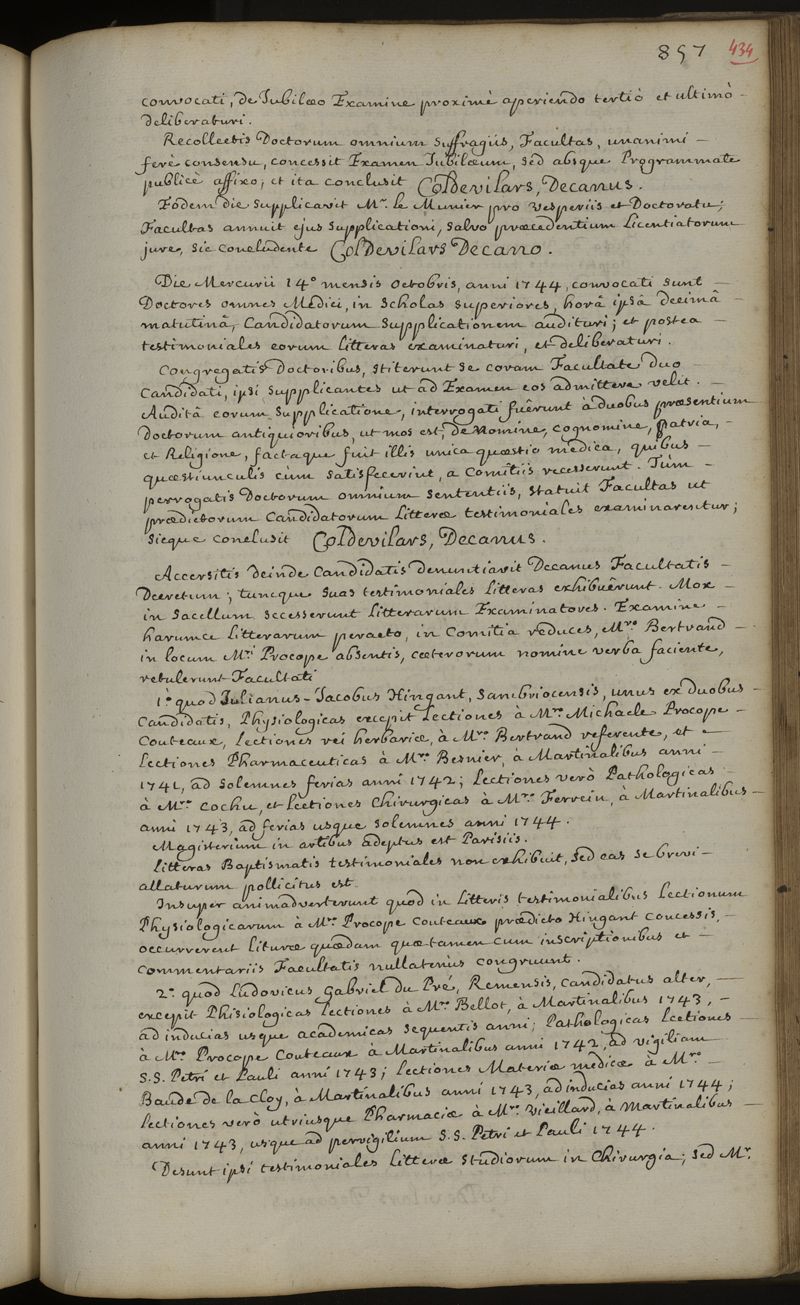 857 434
convocati, de Jubilæo Examine proximè aperiendo tertiò et ultimò -
deliberaturi.
Recollectis Doctorum omnium suffragiis, Facultas, unanimi -
ferè consensu, concessit Examen Jubilæum, sed absque Programmate
publicè affixo; et ita conclusit ColDevilars, Decanus.
Eodem die supplicavit Mr. le Munier pro Vesperiis et Doctoratu;
Facultas annuit ejus supplicationi, salvo præcedentium Licentiatorum
jure, sic concludente ColDevilars Decano.
Die Mercurii 14° mensis octobris, anni 1744, convocati sunt -
Doctores omnes Medici, in scholas superiores, horâ ipsâ decimâ -
matutinâ, Candidatorum supplicationem audituri; et postea -
testimoniales eorum litteras examinaturi, et deliberaturi.
Congregatis Doctoribus, stiterunt se coram Facultate duo -
Candidati, ipsi supplicantes ut ad Examen eos admittere velit. -
Auditâ eorum supplicatione, interrogati fuêrunt à duobus præsentium
Doctorum antiquioribus, ut mos est, de Nomine, cognomine, patria, -
et Religione, factaque fuit illis unica quæstio medica, quibus -
quæstiunculis cùm satisfecerint, a Comitiis recesserunt. Tùm -
perrogatis Doctorum omnium sententiis, statuit Facultas ut
prædictorum Candidatorum Litteræ testimoniales examinarentur;
sicque conclusit ColDevilars, Decanus.
Accersitis deinde Candidatis denuntiavit Decanus Facultatis -
Decretum; tuncque suas testimoniales litteras exhibuêrunt. Mox -
in sacellum secesserunt Litterarum Examinatores. Examine -
harumce litterarum peracto, in Comitia reduces, Mro. Bertrand -
in locum Mri. Procope absentis, cæterorum nomine verba faciente,
retulerunt Facultati
1.° quod Julianus-Jacobus Hingant, sanbriocensis, unus ex duobus -
Candidatis, Physiologicas excepit Lectiones à Mro. Michaele Procope -
Couteaux, Lectiones rei herbariæ, à Mro. Bertrand referente, et -
Lectiones Pharmaceuticas à Mro. Besnier, à Martinalibus anni -
1741, ad solemnes ferias anni 1742; Lectiones verò Pathologicas -
à Mro. Cochu, et Lectiones Chirurgicas à Mro. Ferrein, à Martinalibus -
anni 1743, ad ferias usque solemnes anni 1744.
Magisterium in artibus adeptus est Parisiis.
Litteras Baptismatis testimoniales non exhibuit, sed eas se brevi -
allaturum pollicitus est.
Insuper animadverterunt quod in Litteris testimonialibus Lectionum
Physiologicarum à Mro. Procope Couteaux prædicto Hingant concessis, -
occurrerent lituræ quædam quæ tamen cum inscriptionibus et -
commentariis Facultatis nullatenùs congruunt.
2.° quod Ludovicus Gabriel du Pré, Remensis, Candidatus alter, -
excepit Phisiologicas lectiones à Mro. Bellot, à Martinalibus 1743, -
ad inducias usque academicas sequentis anni; Pathologicas Lectiones -
à Mro. Procope Couteaux à Martinalibus anni 1742, ad vigiliam
S.S. Petri et Pauli anni 1743; Lectiones Materiæ medicæ à Mro. -
Baude de la Cloy, à Martinalibus anni 1743, ad inducias anni 1744;
Lectiones verò utriusque Pharmaciæ à Mro. Vieillard, à Martinalibus -
anni 1743, usque ad pervigilium S.S. Petri et Pauli 1744.
Desunt ipsi testimoniales Litteræ studiorum in Chirurgia; sed Mr.